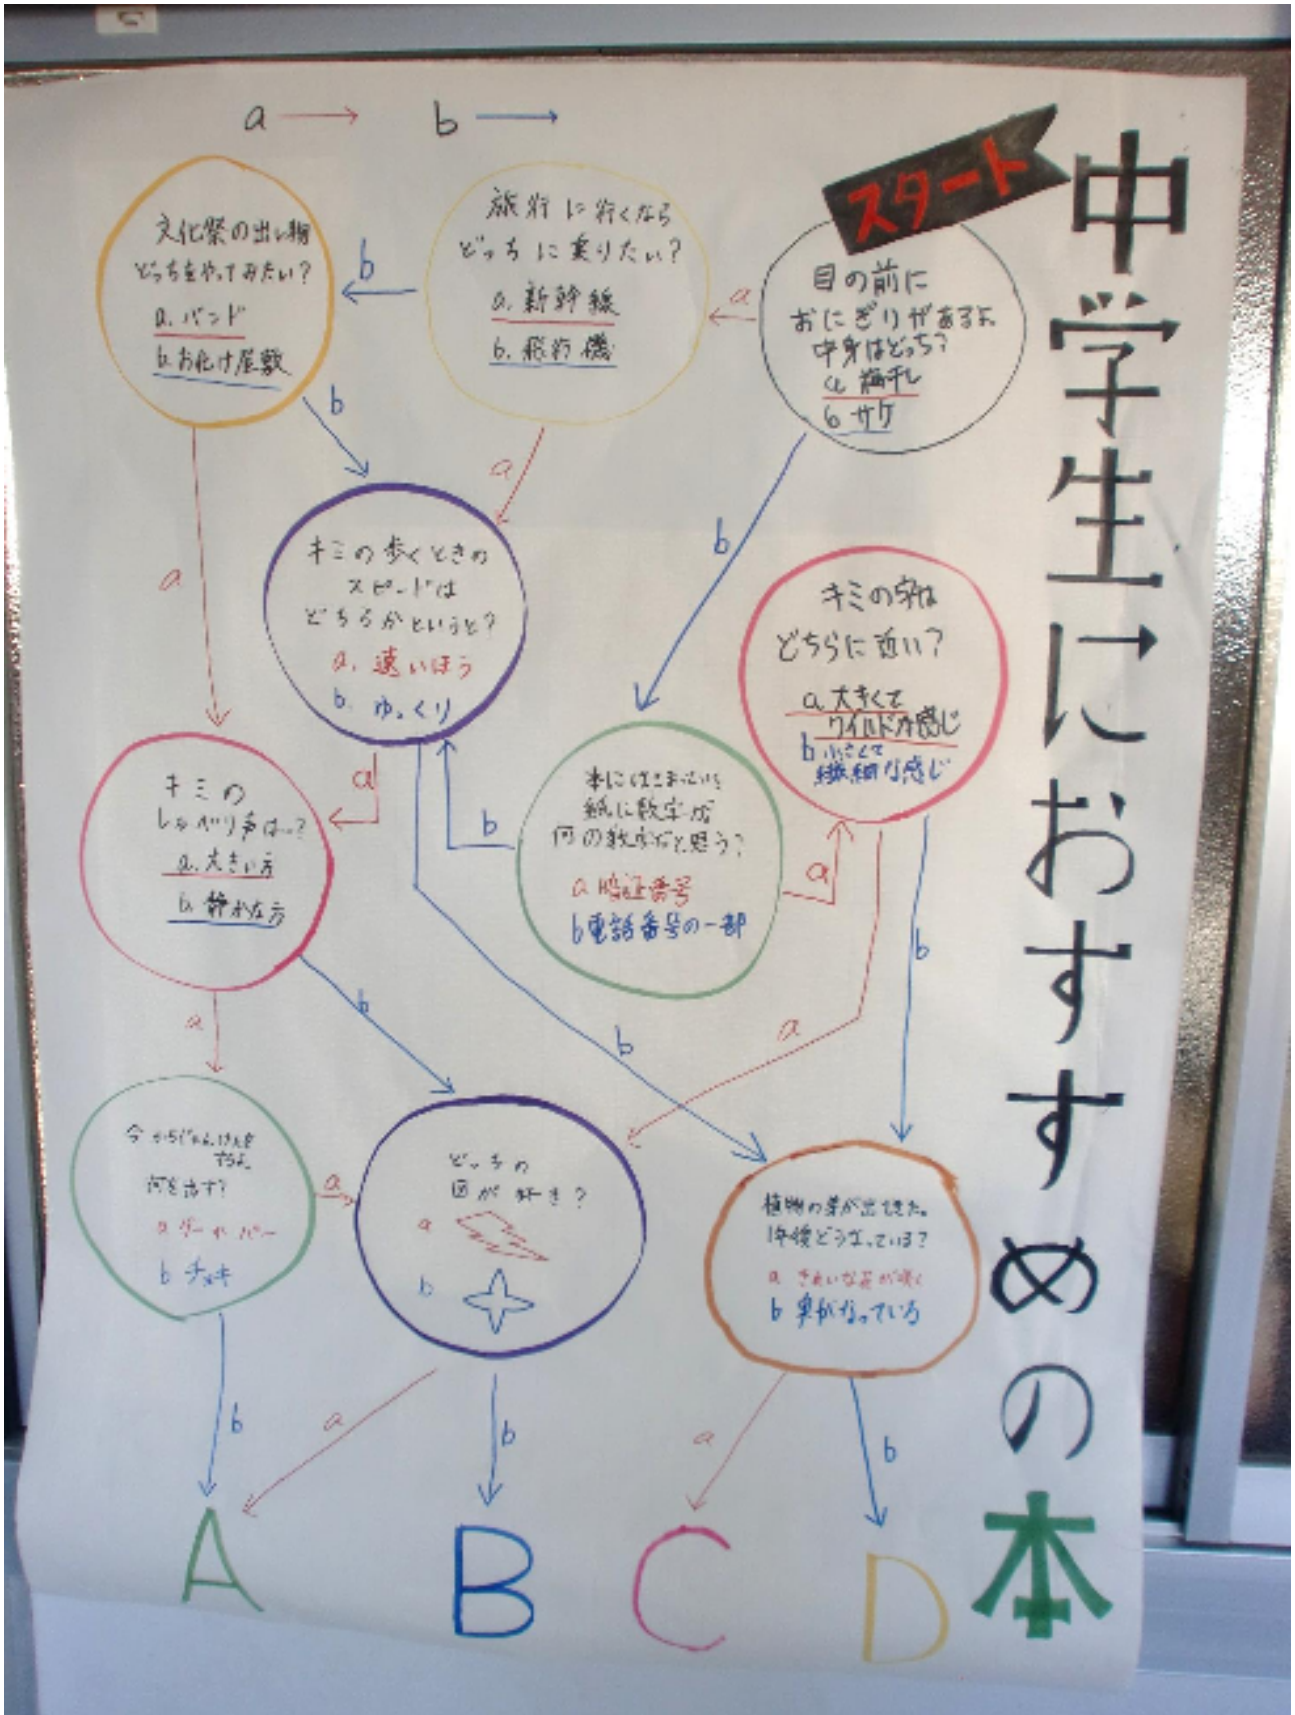 中学生におすすめの本
a → b →
スタート
目の前に
おにぎりがあるよ
中身はどっち?
a 梅干し
b サケ
a
b
旅行に行くなら
どっちに乗りたい?
a. 新幹線
b. 飛行機
b
a
文化祭の出し物
どっちをやってみたい?
a. バンド
b. お化け屋敷
b
a
キミの歩くときの
スピードは
どちらかというと?
a. 速いほう
b. ゆっくり
a
b
キミの字は
どちらに近い?
a 大きくて
ワイルドな感じ
b 小さくて
繊細な感じ
a
b
本にはさまっている
紙に数字が
何の数字だと思う?
a 暗証番号
b 電話番号の一部
b
a
キミの
しゃべり声は..?
a. 大きい方
b. 静かな方
a
b
今からじゃんけんを
するよ
何を出す?
a グーかパー
b チョキ
a
b
どっちの
図が好き?
a
b
a
b
植物の芽が出てきた。
1年後どうなっている?
a きれいな花が咲く
b 実がなっている
a
b
A B C D